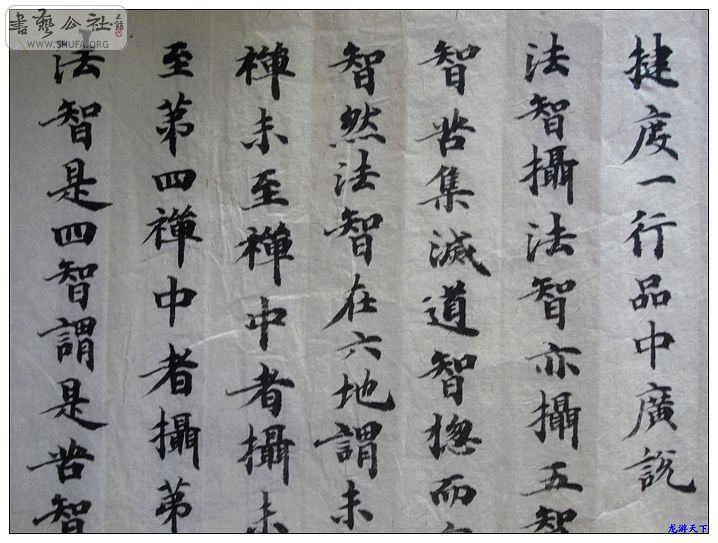 揵度一行品中廣說
法智攝法智亦攝五智
智苦集滅道智揔而
智然法智在六地謂未
禪未至禪中者攝未
至第四禪中者攝第
法智是四智謂是苦智
書藝公社
WWW.SHUFA.ORG
龙游天下